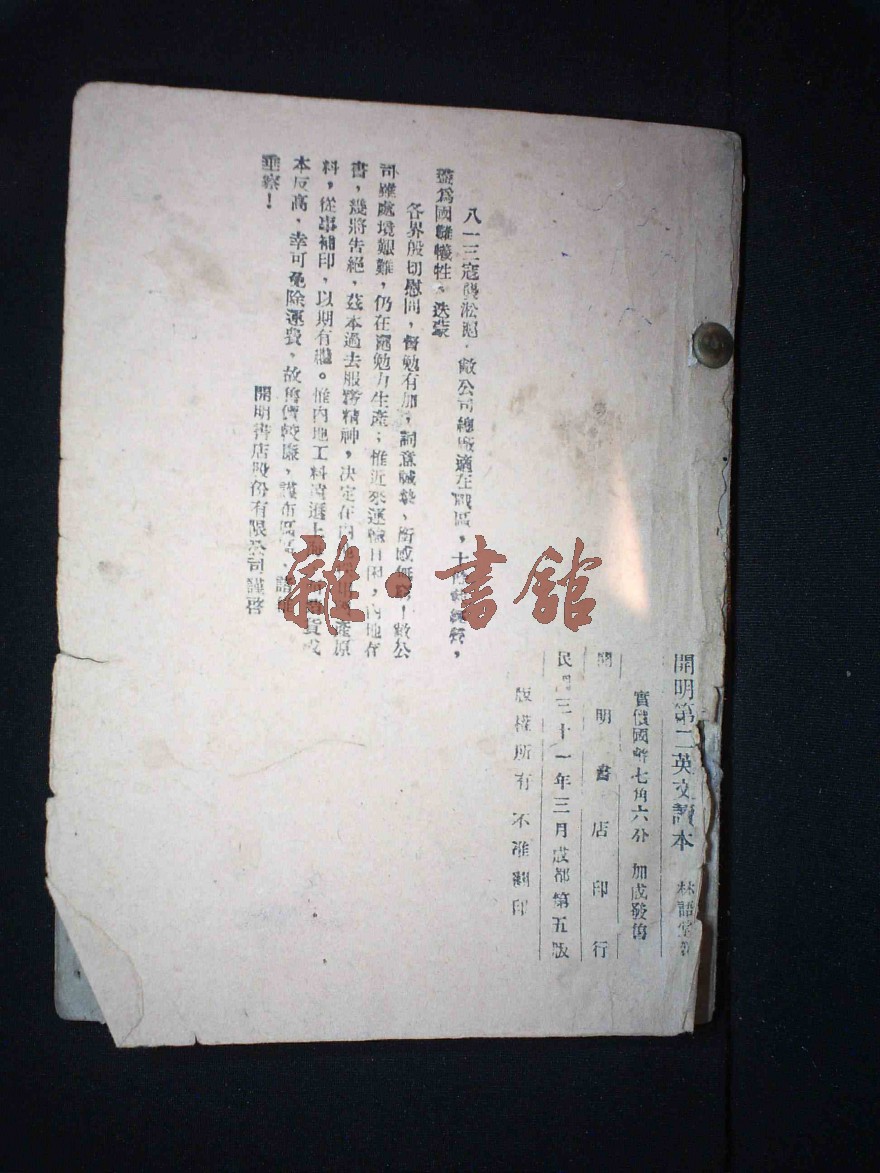 開明第二英文讀本 林語堂著
實價國幣七角六分 加成發售
開明書店印行
民國三十一年三月成都第五版
版權所有 不准翻印
八一三寇襲淞滬，敝公司總廠適在戰區，十
盡為國難犧牲，迭蒙
各界殷切慰問，督勉有加，詞意誠摯，銜感無！敝公
司雖處境艱難，仍在黽勉力生產；惟近來運輸日困，內地存
書，幾將告絕，茲本過去服務精神，決定在內地產原
料，從事補印，以期有繼。惟內地工料遠過上海貨成
本反高，幸可免除運費，故售價較廉，謹布區區，諸維
垂察！
開明書店股份有限公司謹啓
雜·書館